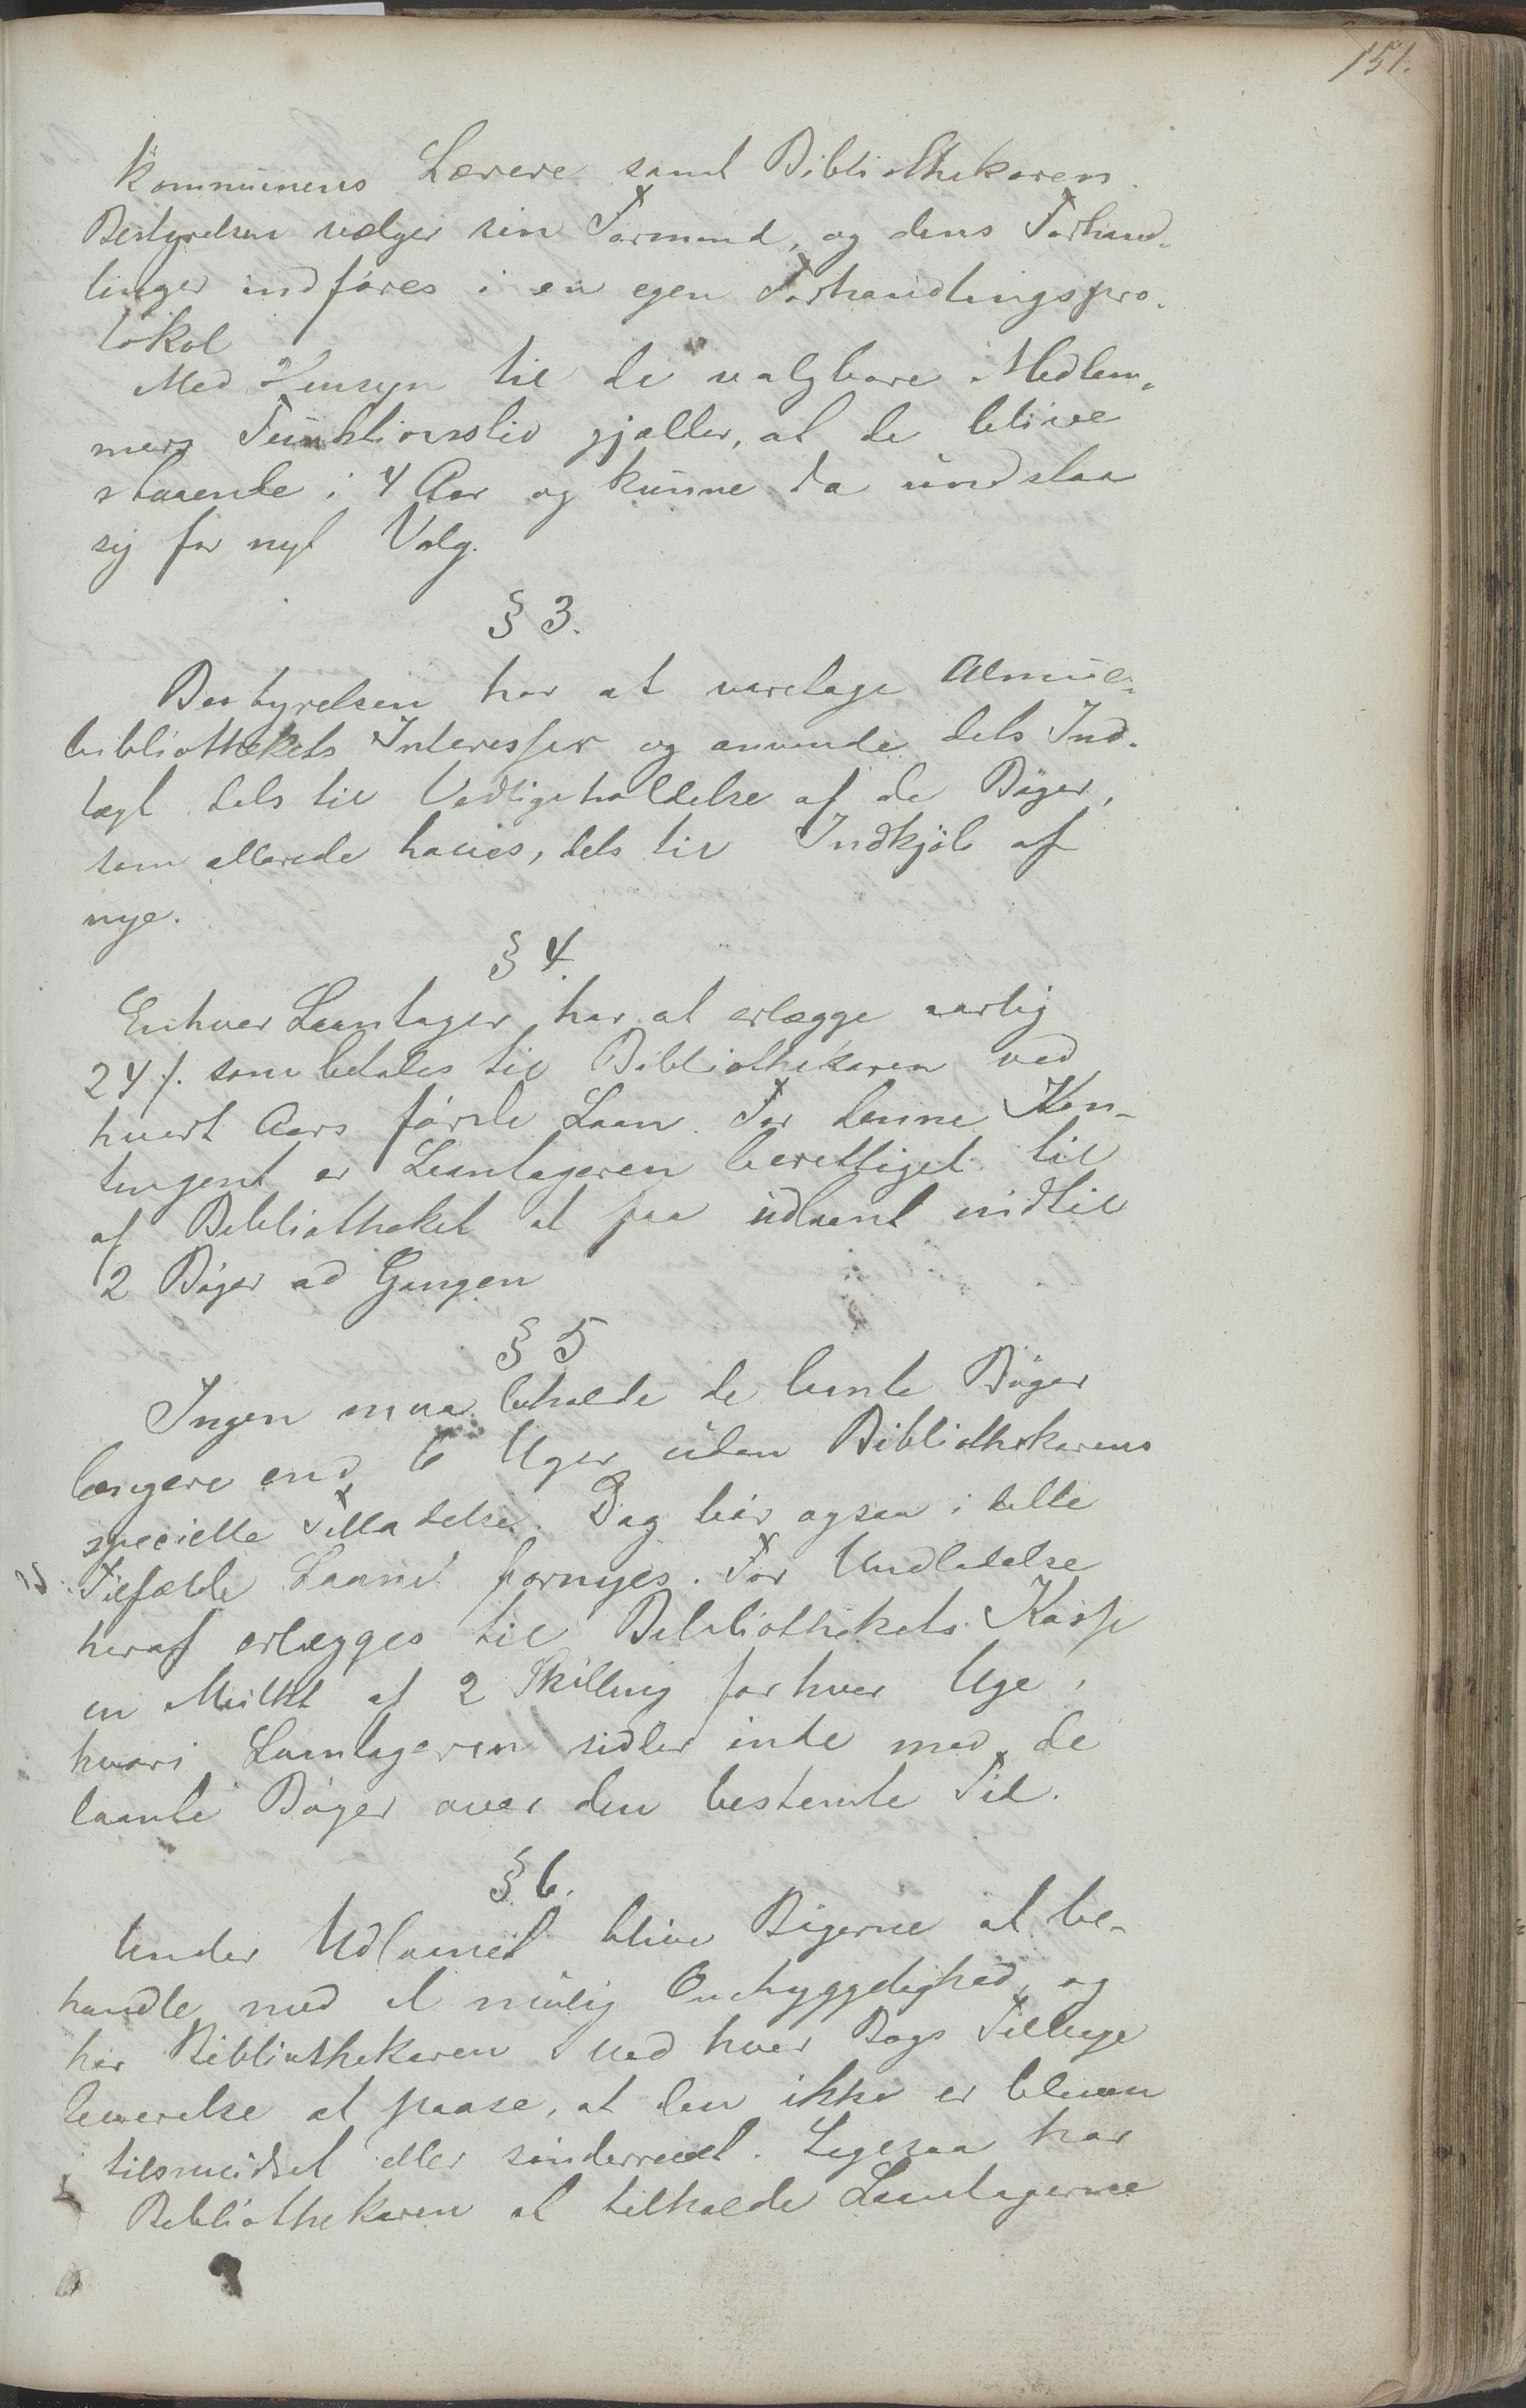 151.
Kommunens Lærere samt Bibliothekaren.
Bestyrelsen vælger sin Formand, og dens Forhand-
linger indføres i en egen Forhandlingspro-
tokol
Med Hensyn til de valgbare Medlem-
mers Funktionstid gjælder, at de blive
staaende i 4 Aar og kunne da undslaa
sig for nyt Valg.
§ 3.
Bestyrelsen har at varetage Almue-
bibliothekets Interesser og anvende dets Ind-
tægt dels til Vedligeholdelse af de Bøger,
som allerede haves, dels til Indkjøb af
nye.
§ 4.
Enhver Laantager har at erlægge aarlig
24 s. som betales til Bibliothekaren ved
hvert Aars første Laan. For denne Kon-
tingent er Laantageren berettiget til
af Bibliotheket at faa udlaant indtil
2 Bøger ad Gangen
§ 5
Ingen maa beholde de laante Bøger
længere end 6 Uger uden Bibliothekarens
specielle Tilladelse. Dog bør ogsaa i dette
Tilfælde Laanet fornyes. For Undladelse
heraf erlægges til Bibliothekets Kasse
en Mulkt af 2 Skilling for hver Uge,
hvori Laantageren sidder inde med de
laante Bøger over den bestemte Tid.
§ 6.
Under Udlaanet blive Bøgerne at be-
handle med al mulig Omhyggelighed, og
har Bibliothekaren ved hver Bogs Tilbage
levering at paase, at den ikke er bleven
tilsmudset eller sønderrevet. Ligesaa har
Bibliothekaren at tilholde Laantagerne